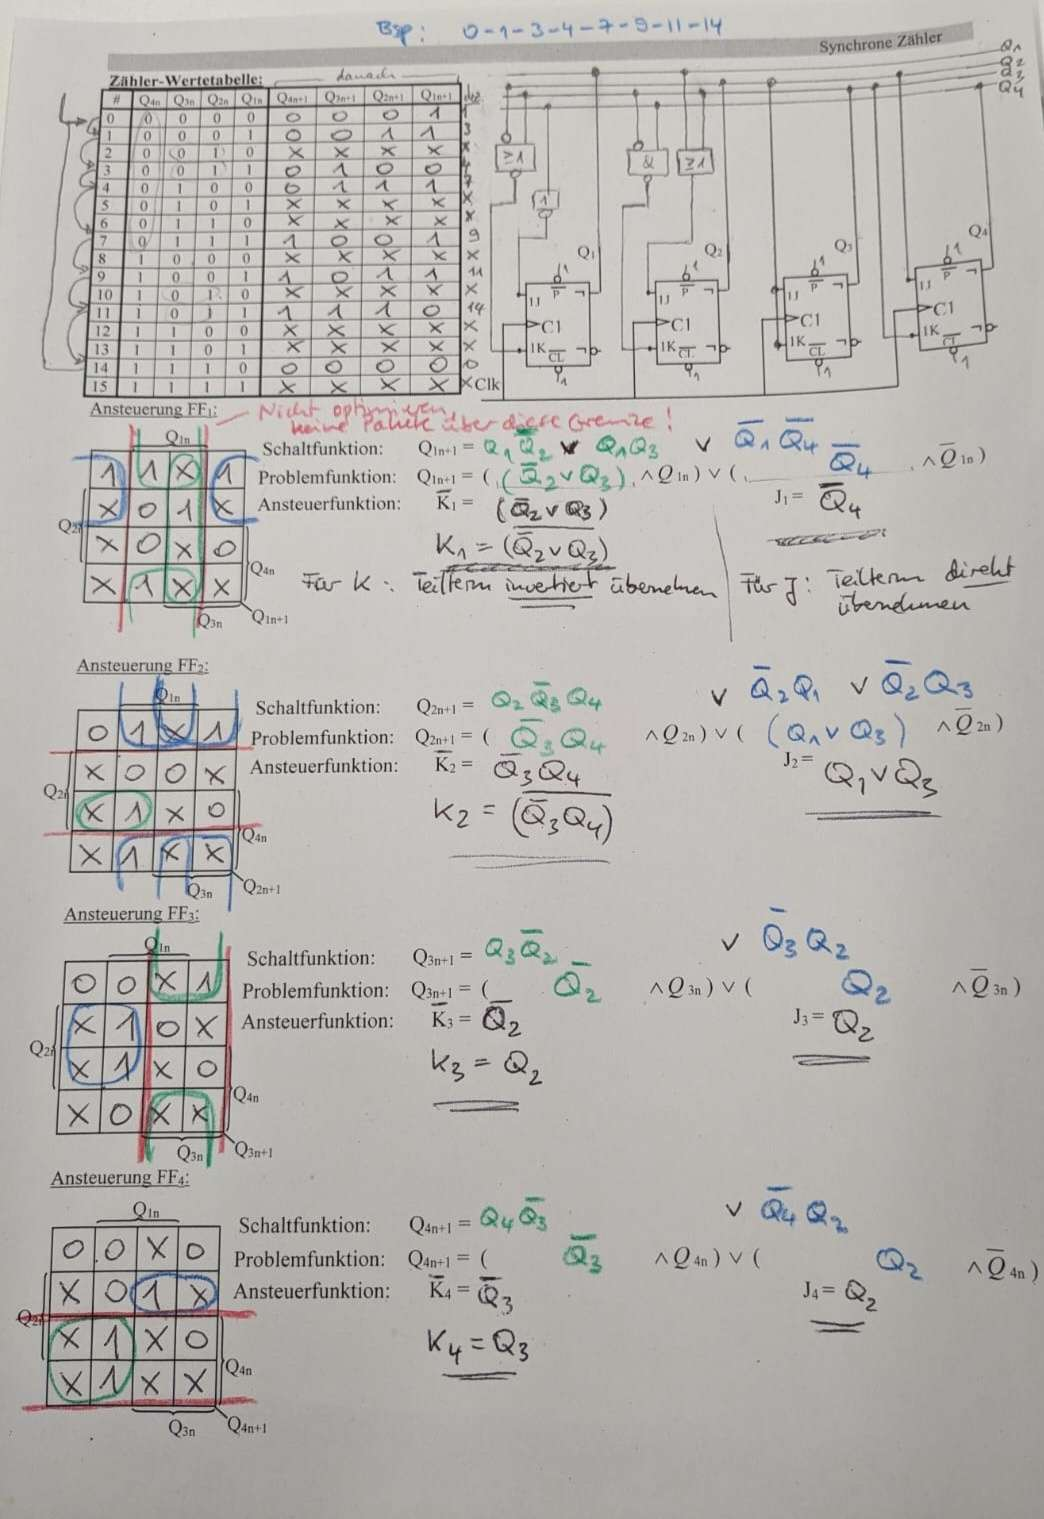 Bsp: 0-1-3-4-7-9-11-14
Synchrone Zähler
Zähler-Wertetabelle:
danach
# Q4n Q3n Q2n Q1n Q4n+1 Q3n+1 Q2n+1 Q1n+1 dez
0 0 0 0 0 0 0 0 1 1
1 0 0 0 1 0 0 1 1 3
2 0 0 1 0 X X X X X
3 0 0 1 1 0 1 0 0 4
4 0 1 0 0 0 1 1 1 7
5 0 1 0 1 X X X X X
6 0 1 1 0 X X X X X
7 0 1 1 1 1 0 0 1 9
8 1 0 0 0 X X X X X
9 1 0 0 1 1 0 1 1 11
10 1 0 1 0 X X X X X
11 1 0 1 1 1 1 1 0 14
12 1 1 0 0 X X X X X
13 1 1 0 1 X X X X X
14 1 1 1 0 0 0 0 0 0
15 1 1 1 1 X X X X X
Q1
Q2
Q3
Q4
≥1 1 & ≥1
Q1 Q2 Q3 Q4
1 1 1 1
1J P̅ ¬ 1J P̅ ¬ 1J P̅ ¬ 1J P̅ ¬
C1 C1 C1 C1
1K C̅L̅ 1K C̅L̅ 1K C̅L̅ 1K C̅L̅
1 1 1 1
Clk
Ansteuerung FF1:
Nicht optimieren,
keine Pakete über diese Grenze!
Q1n
1 1 X 1
X 0 1 X
X 0 X 0
X 1 X X
Q2n
Q4n
Q3n
Q1n+1
Schaltfunktion: Q1n+1 = Q1 Q̅2 ∨ Q1Q3 ∨ Q̅1 Q̅4
Problemfunktion: Q1n+1 = ( (Q̅2 ∨ Q3) ∧ Q1n) ∨ ( Q̅4 ∧ Q̅1n)
Ansteuerfunktion: K̅1 = (Q̅2 ∨ Q3) J1 = Q̅4
K1 = \overline{(Q̅2 ∨ Q3)}
Für K: Teilterm invertiert übernehmen
Für J: Teilterm direkt
übernehmen
Ansteuerung FF2:
Q1n
0 1 X 1
X 0 0 X
X 1 X 0
X 1 X X
Q2n
Q4n
Q3n
Q2n+1
Schaltfunktion: Q2n+1 = Q2 Q̅3 Q4 ∨ Q̅2 Q1 ∨ Q̅2 Q3
Problemfunktion: Q2n+1 = ( Q̅3 Q4 ∧ Q2n) ∨ ( (Q1 ∨ Q3) ∧ Q̅2n)
Ansteuerfunktion: K̅2 = Q̅3 Q4 J2 = Q1 ∨ Q3
K2 = \overline{(Q̅3 Q4)}
Ansteuerung FF3:
Q1n
0 0 X 1
X 1 0 X
X 1 X 0
X 0 X X
Q2n
Q4n
Q3n
Q3n+1
Schaltfunktion: Q3n+1 = Q3 Q̅2 ∨ Q̅3 Q2
Problemfunktion: Q3n+1 = ( Q̅2 ∧ Q3n) ∨ ( Q2 ∧ Q̅3n)
Ansteuerfunktion: K̅3 = Q̅2 J3 = Q2
K3 = Q2
Ansteuerung FF4:
Q1n
0 0 X 0
X 0 1 X
X 1 X 0
X 1 X X
Q2n
Q4n
Q3n
Q4n+1
Schaltfunktion: Q4n+1 = Q4 Q̅3 ∨ Q̅4 Q2
Problemfunktion: Q4n+1 = ( Q̅3 ∧ Q4n) ∨ ( Q2 ∧ Q̅4n)
Ansteuerfunktion: K̅4 = Q̅3 J4 = Q2
K4 = Q3